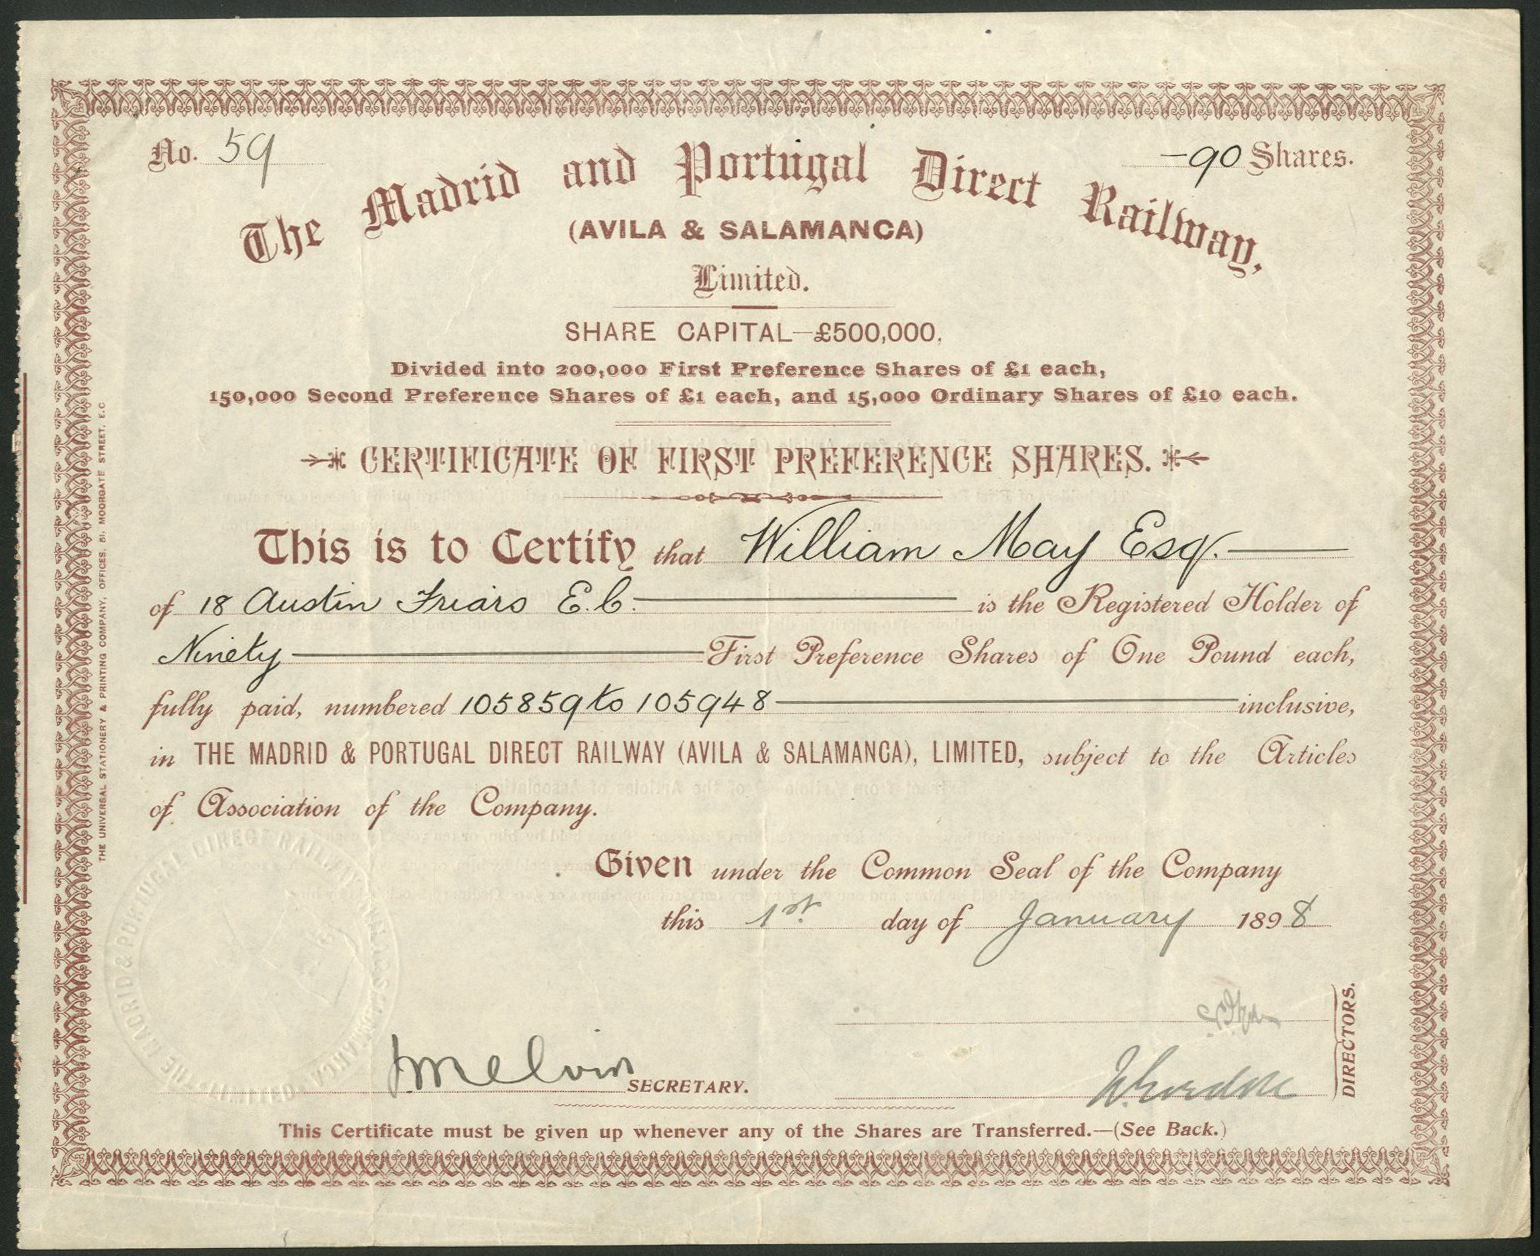 No. 59
-90 Shares.
The Madrid and Portugal Direct Railway,
(AVILA & SALAMANCA)
Limited.
SHARE CAPITAL—£500,000.
Divided into 200,000 First Preference Shares of £1 each,
150,000 Second Preference Shares of £1 each, and 15,000 Ordinary Shares of £10 each.
CERTIFICATE OF FIRST PREFERENCE SHARES.
This is to Certify that William May Esq.
of 18 Austin Friars E.C. is the Registered Holder of
Ninety First Preference Shares of One Pound each,
fully paid, numbered 105859 to 105948 inclusive,
in THE MADRID & PORTUGAL DIRECT RAILWAY (AVILA & SALAMANCA), LIMITED, subject to the Articles
of Association of the Company.
Given under the Common Seal of the Company
this 1st. day of January 1898
DIRECTORS.
J. Melvin SECRETARY.
This Certificate must be given up whenever any of the Shares are Transferred.—(See Back.)
THE UNIVERSAL STATIONERY & PRINTING COMPANY, OFFICES, 51, MOORGATE STREET, E.C
THE MADRID & PORTUGAL DIRECT RAILWAY (AVILA & SALAMANCA) LIMITED